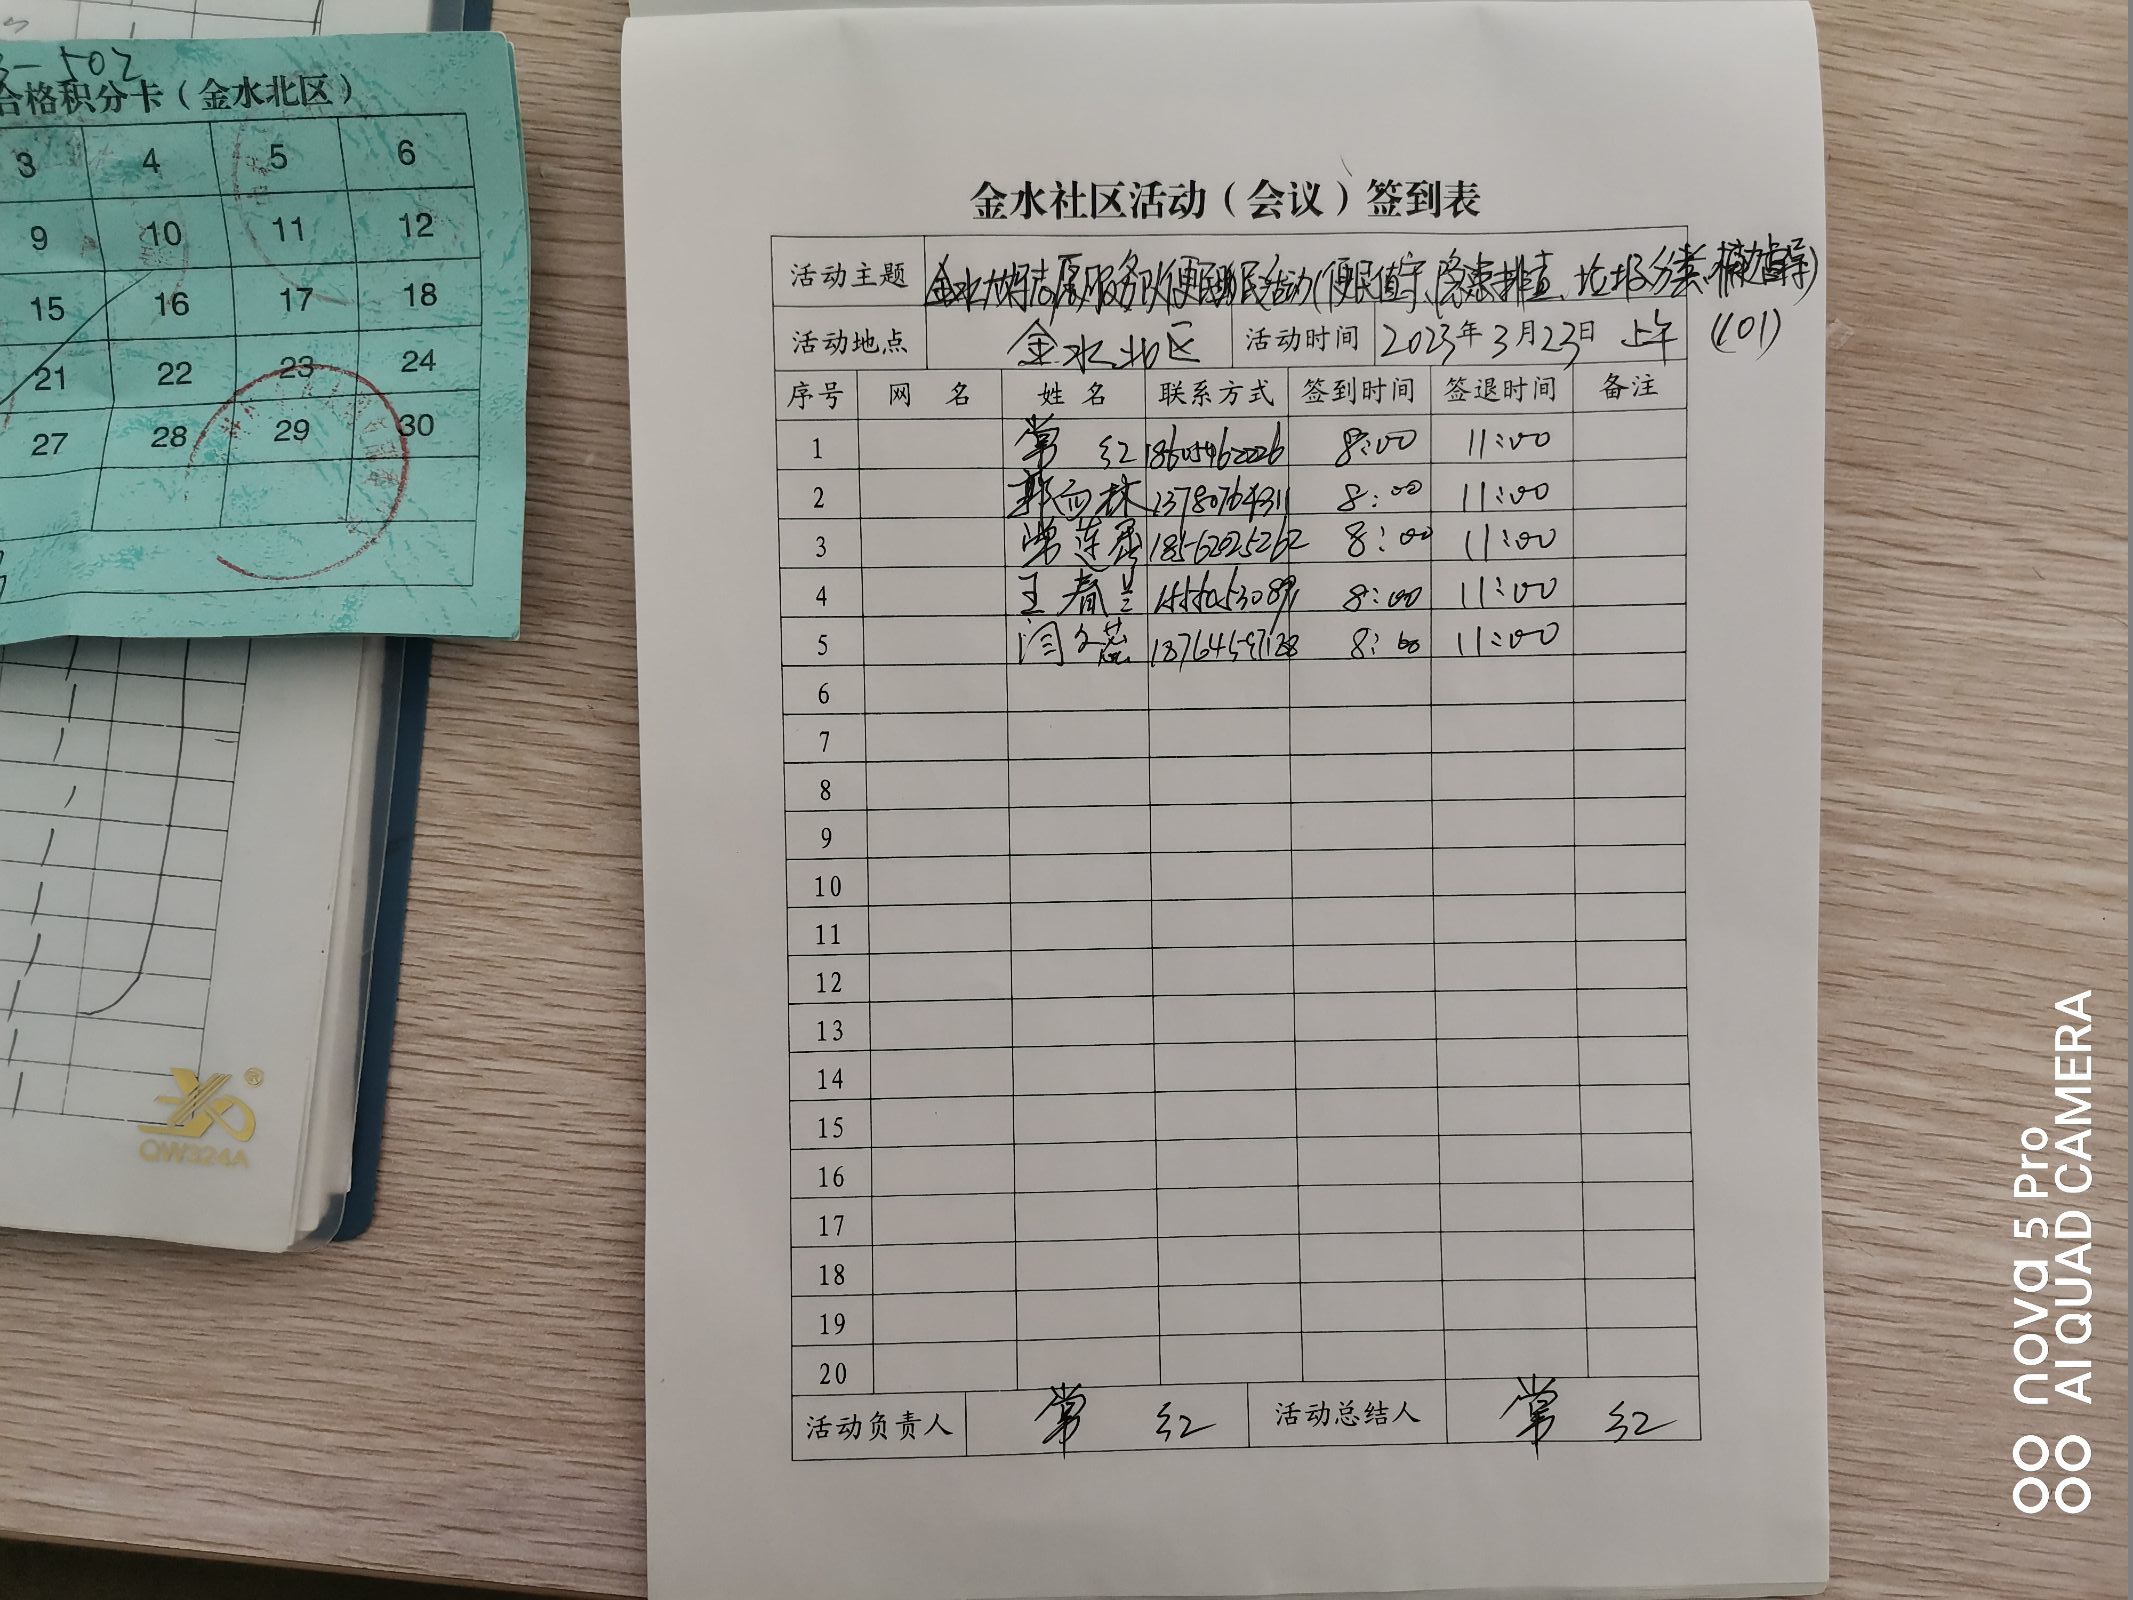 502
合格积分卡（金水北区）
3 4 5 6
9 10 11 12
15 16 17 18
21 22 23 24
27 28 29 30
QW324A
金水社区活动（会议）签到表
活动主题 金水 志愿服务队便民 活动(便民值守、隐患排查、垃圾分类、桶边督导)
活动地点 金水北区 活动时间 2023年3月23日 上午 (101)
序号 网 名 姓 名 联系方式 签到时间 签退时间 备注
1 常 红 18605462226 8:00 11:00
2 13780764311 8:00 11:00
3 常莲 18562025262 8:00 11:00
4 王春兰 8:00 11:00
5 闫冬蕊 8:00 11:00
6
7
8
9
10
11
12
13
14
15
16
17
18
19
20
活动负责人 常 红 活动总结人 常 红
nova 5 Pro
AI QUAD CAMERA